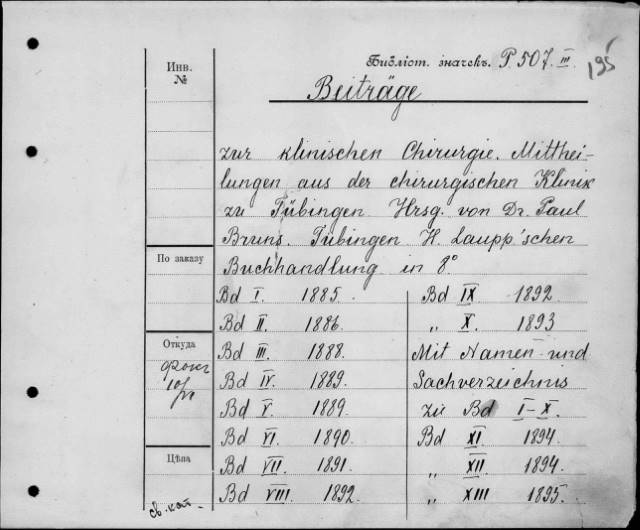 Библіот. значекъ. P 507. III.
195
Инв.
№
Beiträge
zur klinischen Chirurgie. Mitthei-
lungen aus der chirurgischen Klinik
zu Tübingen. Hrsg. von Dr. Paul
Bruns. Tübingen H. Laupp'schen
По заказу
Buchhandlung in 8°
Bd I. 1885.
Bd II. 1886.
Bd III. 1888.
Bd IV. 1889.
Bd V. 1889.
Bd VI. 1890.
Bd VII. 1891.
Bd VIII. 1892.
Bd IX. 1892.
„ X. 1893
Mit Namen- und
Sachverzeichnis
zu Bd I-X.
Bd XI. 1894.
„ XII. 1894.
„ XIII 1895.
Откуда
Цѣна
св. кат.